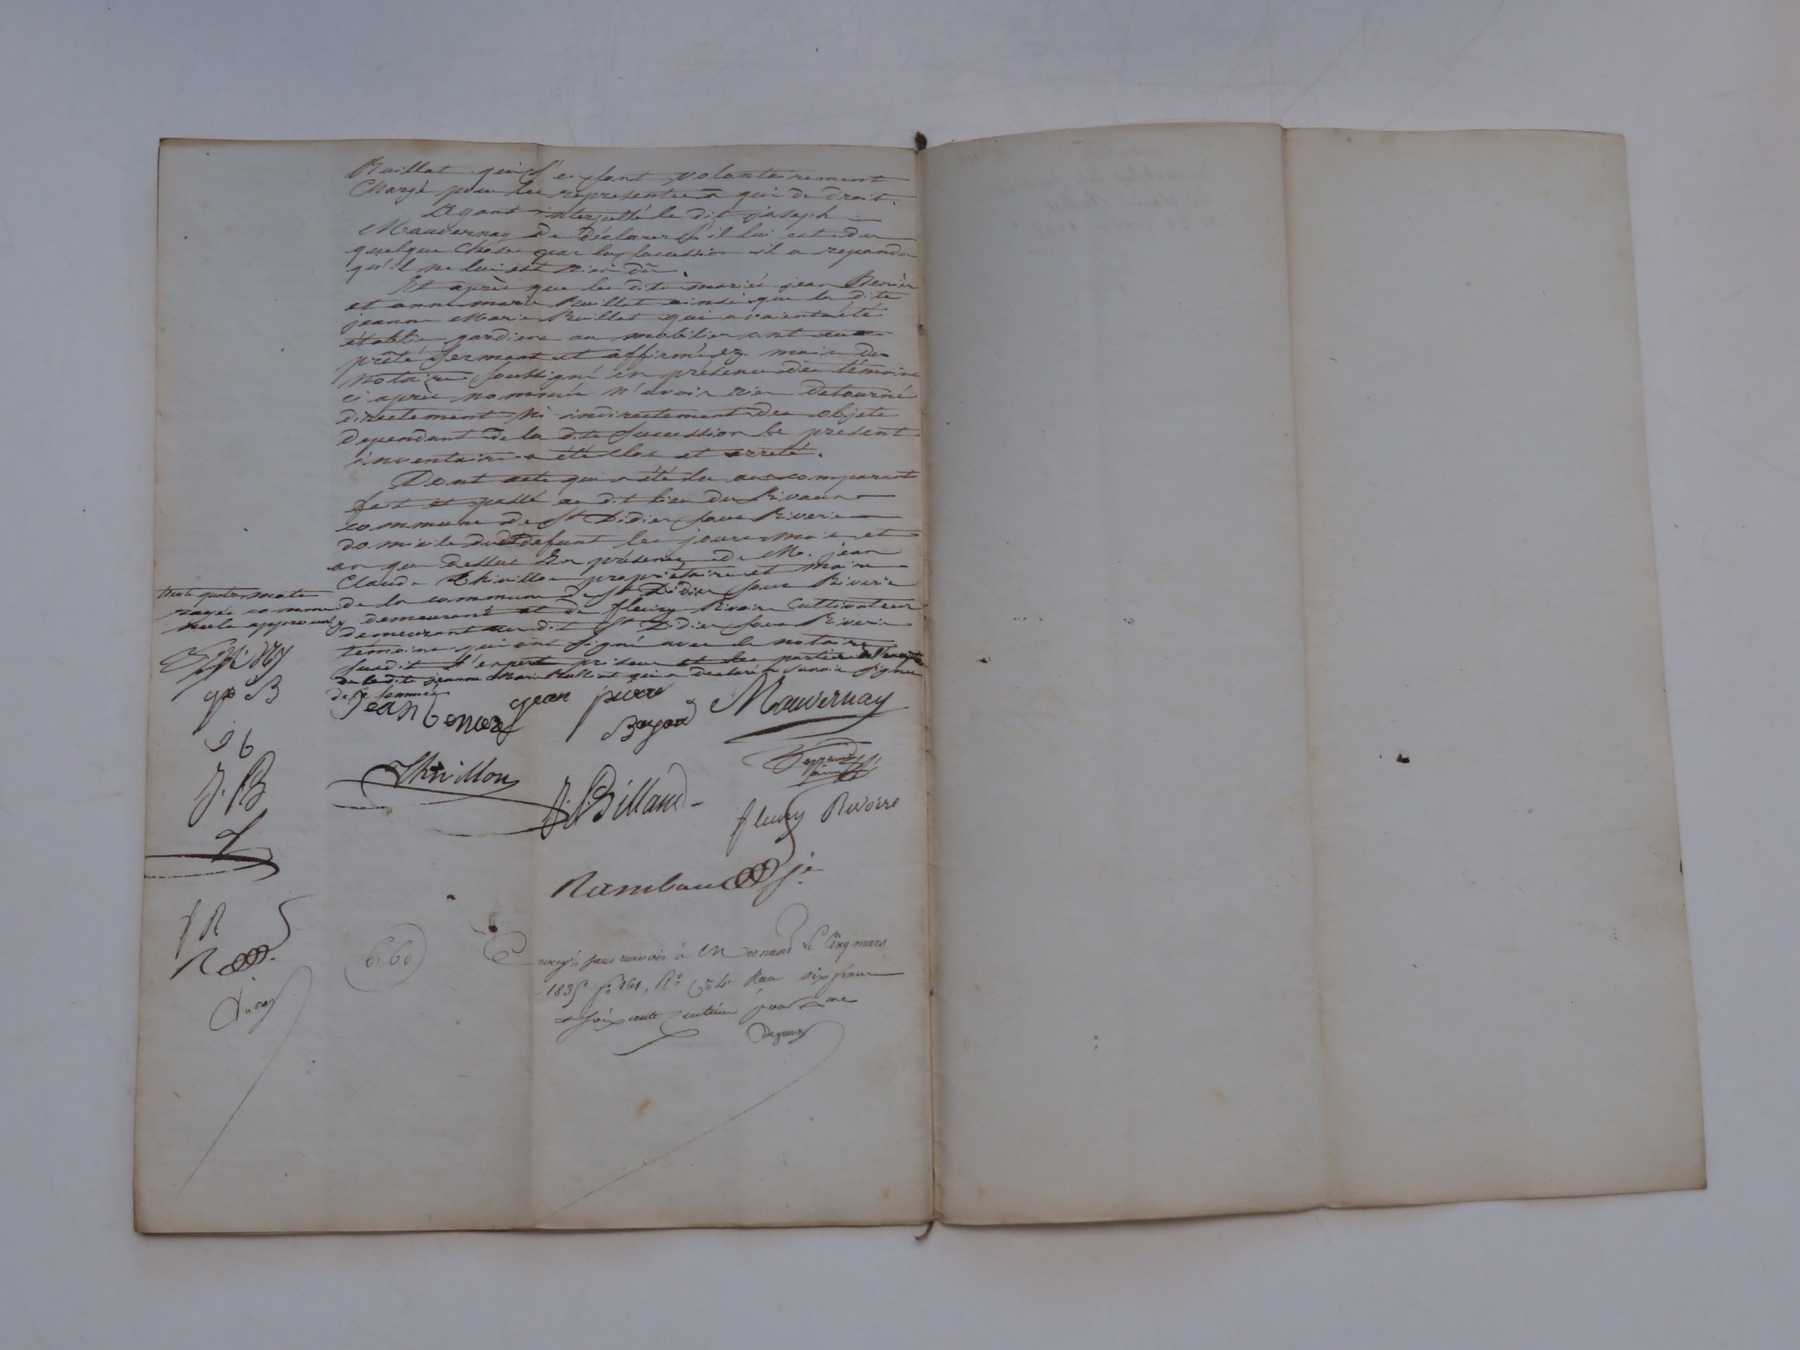 Ruillat qui s'en sont volontairement
Chargé pour les representer à qui de droit.
Ayant interpellé le dit joseph
Mauvernay de déclarer s'il lui est du
quelque chose par la succession il a repondu
qu'il ne lui est rien dû.
Et après que les dits mariés jean Benier
et anne marie Ruillat ainsi que la dite
jeanne Marie Ruillat qui avaient été
établis gardiens au mobilier ont eu
prêté serment et affirmé ez mains du
Notaire soussigné en présence des témoins
ci après nommés n'avoir rien detourné
directement ni indirectement des objets
dependant de la dite succession le présent
inventaire a été clos et arreté.
Dont acte qui a été lu aux comparant
fait et passé au dit lieu du
commune de St Didier sous Riverie
domicile du dit defunt les jours mois et
an que dessus En présence de M. jean
Claude Thivillon propriétaire et maire
de la commune de St Didier sous Riverie
y demeurant et de fleury Rivoire Cultivateur
demeurant au dit St Didier sous Riverie
témoins qui ont signé avec le notaire
susdit l'expert priseur et les parties
de la dite jeanne Marie Ruillat qui a declaré ne savoir signer
de ce sommée
trente quatre mots
rayés comme
nuls approuvés
jean benier jean pierre Mauvernay
Bayard
Thivillon J. Billaud
fleury Rivoire
Rambaud je
jp B
J. B
f R
6.60
Enregé sans renvois à Mornant le Cinq mars
1835 fo 161, Ro Reçu six francs
et soixante centimes pour